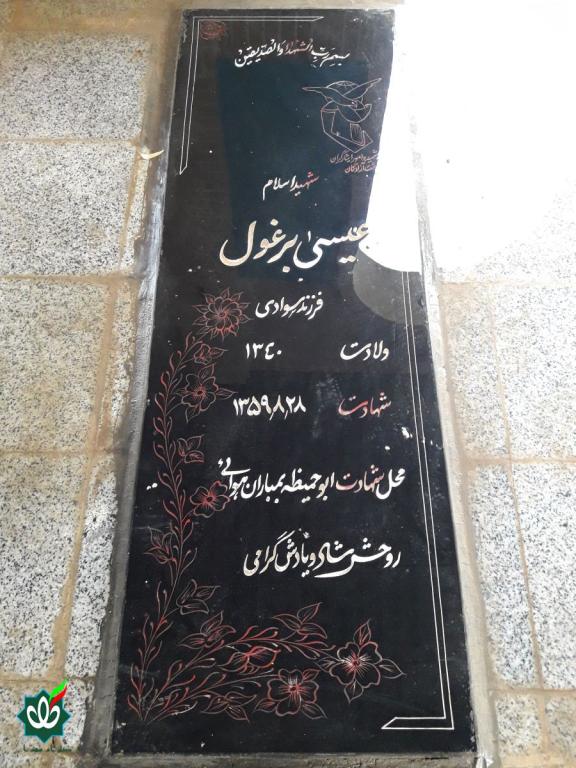 بسم رب الشهداء والصدیقین
شهید و امور ایثارگران
شهید اسلام
عیسی برغول
فرزند سوادی
ولادت ۱۳۴۰
شهادت ۱۳۵۹/۸/۲۸
محل شهادت ابوحمیظه بمباران هوائی
روحش شاد و یادش گرامی